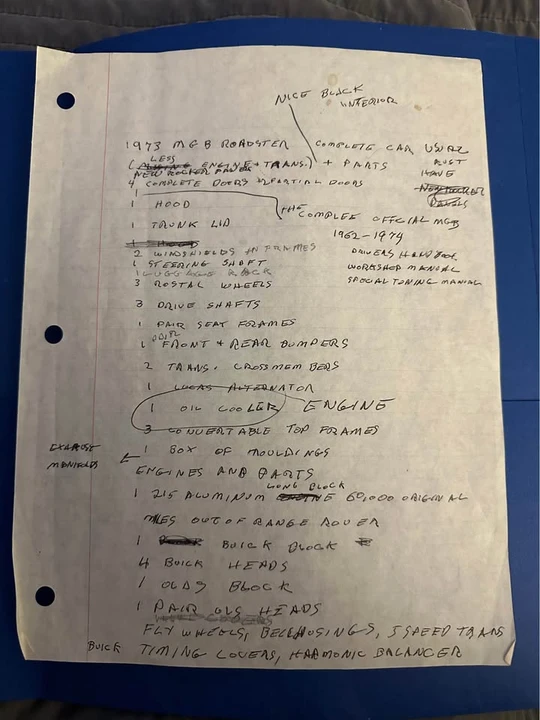 NICE BLACK
INTERIOR
1973 MGB ROADSTER COMPLETE CAR USUAL
(LESS ENGINE + TRANS.) + PARTS RUST
NEW ROCKER PANELS HAVE
4 COMPLETE DOORS + 2 PARTIAL DOORS NEW ROCKER
PANELS
1
1 HOOD THE COMPLETE OFFICIAL MGB
1 TRUNK LID 1962-1974
1 HOOD
2 WINDSHIELDS IN FRAMES DRIVERS HANDBOOK
1 STEERING SHAFT WORKSHOP MANUAL
1 LUGGAGE RACK
3 ROSTAL WHEELS SPECIAL TUNING MANUAL
3 DRIVE SHAFTS
1 PAIR SEAT FRAMES
1 FRONT + REAR BUMPERS
2 TRANS. CROSSMEMBERS
1 LUCAS ALTERNATOR
1 OIL COOLER ENGINE
3 CONVERTABLE TOP FRAMES
EXHAUST
MANIFOLDS
1 BOX OF MOULDINGS
ENGINES AND PARTS
1 215 ALUMINUM LONG BLOCK 60,000 ORIGINAL
MILES OUT OF RANGE ROVER
1 BUICK BLOCK
4 BUICK HEADS
1 OLDS BLOCK
1 PAIR OLS HEADS
FLY WHEELS, BELLHOUSINGS, 5 SPEED TRANS
BUICK TIMING COVERS, HARMONIC BALANCER